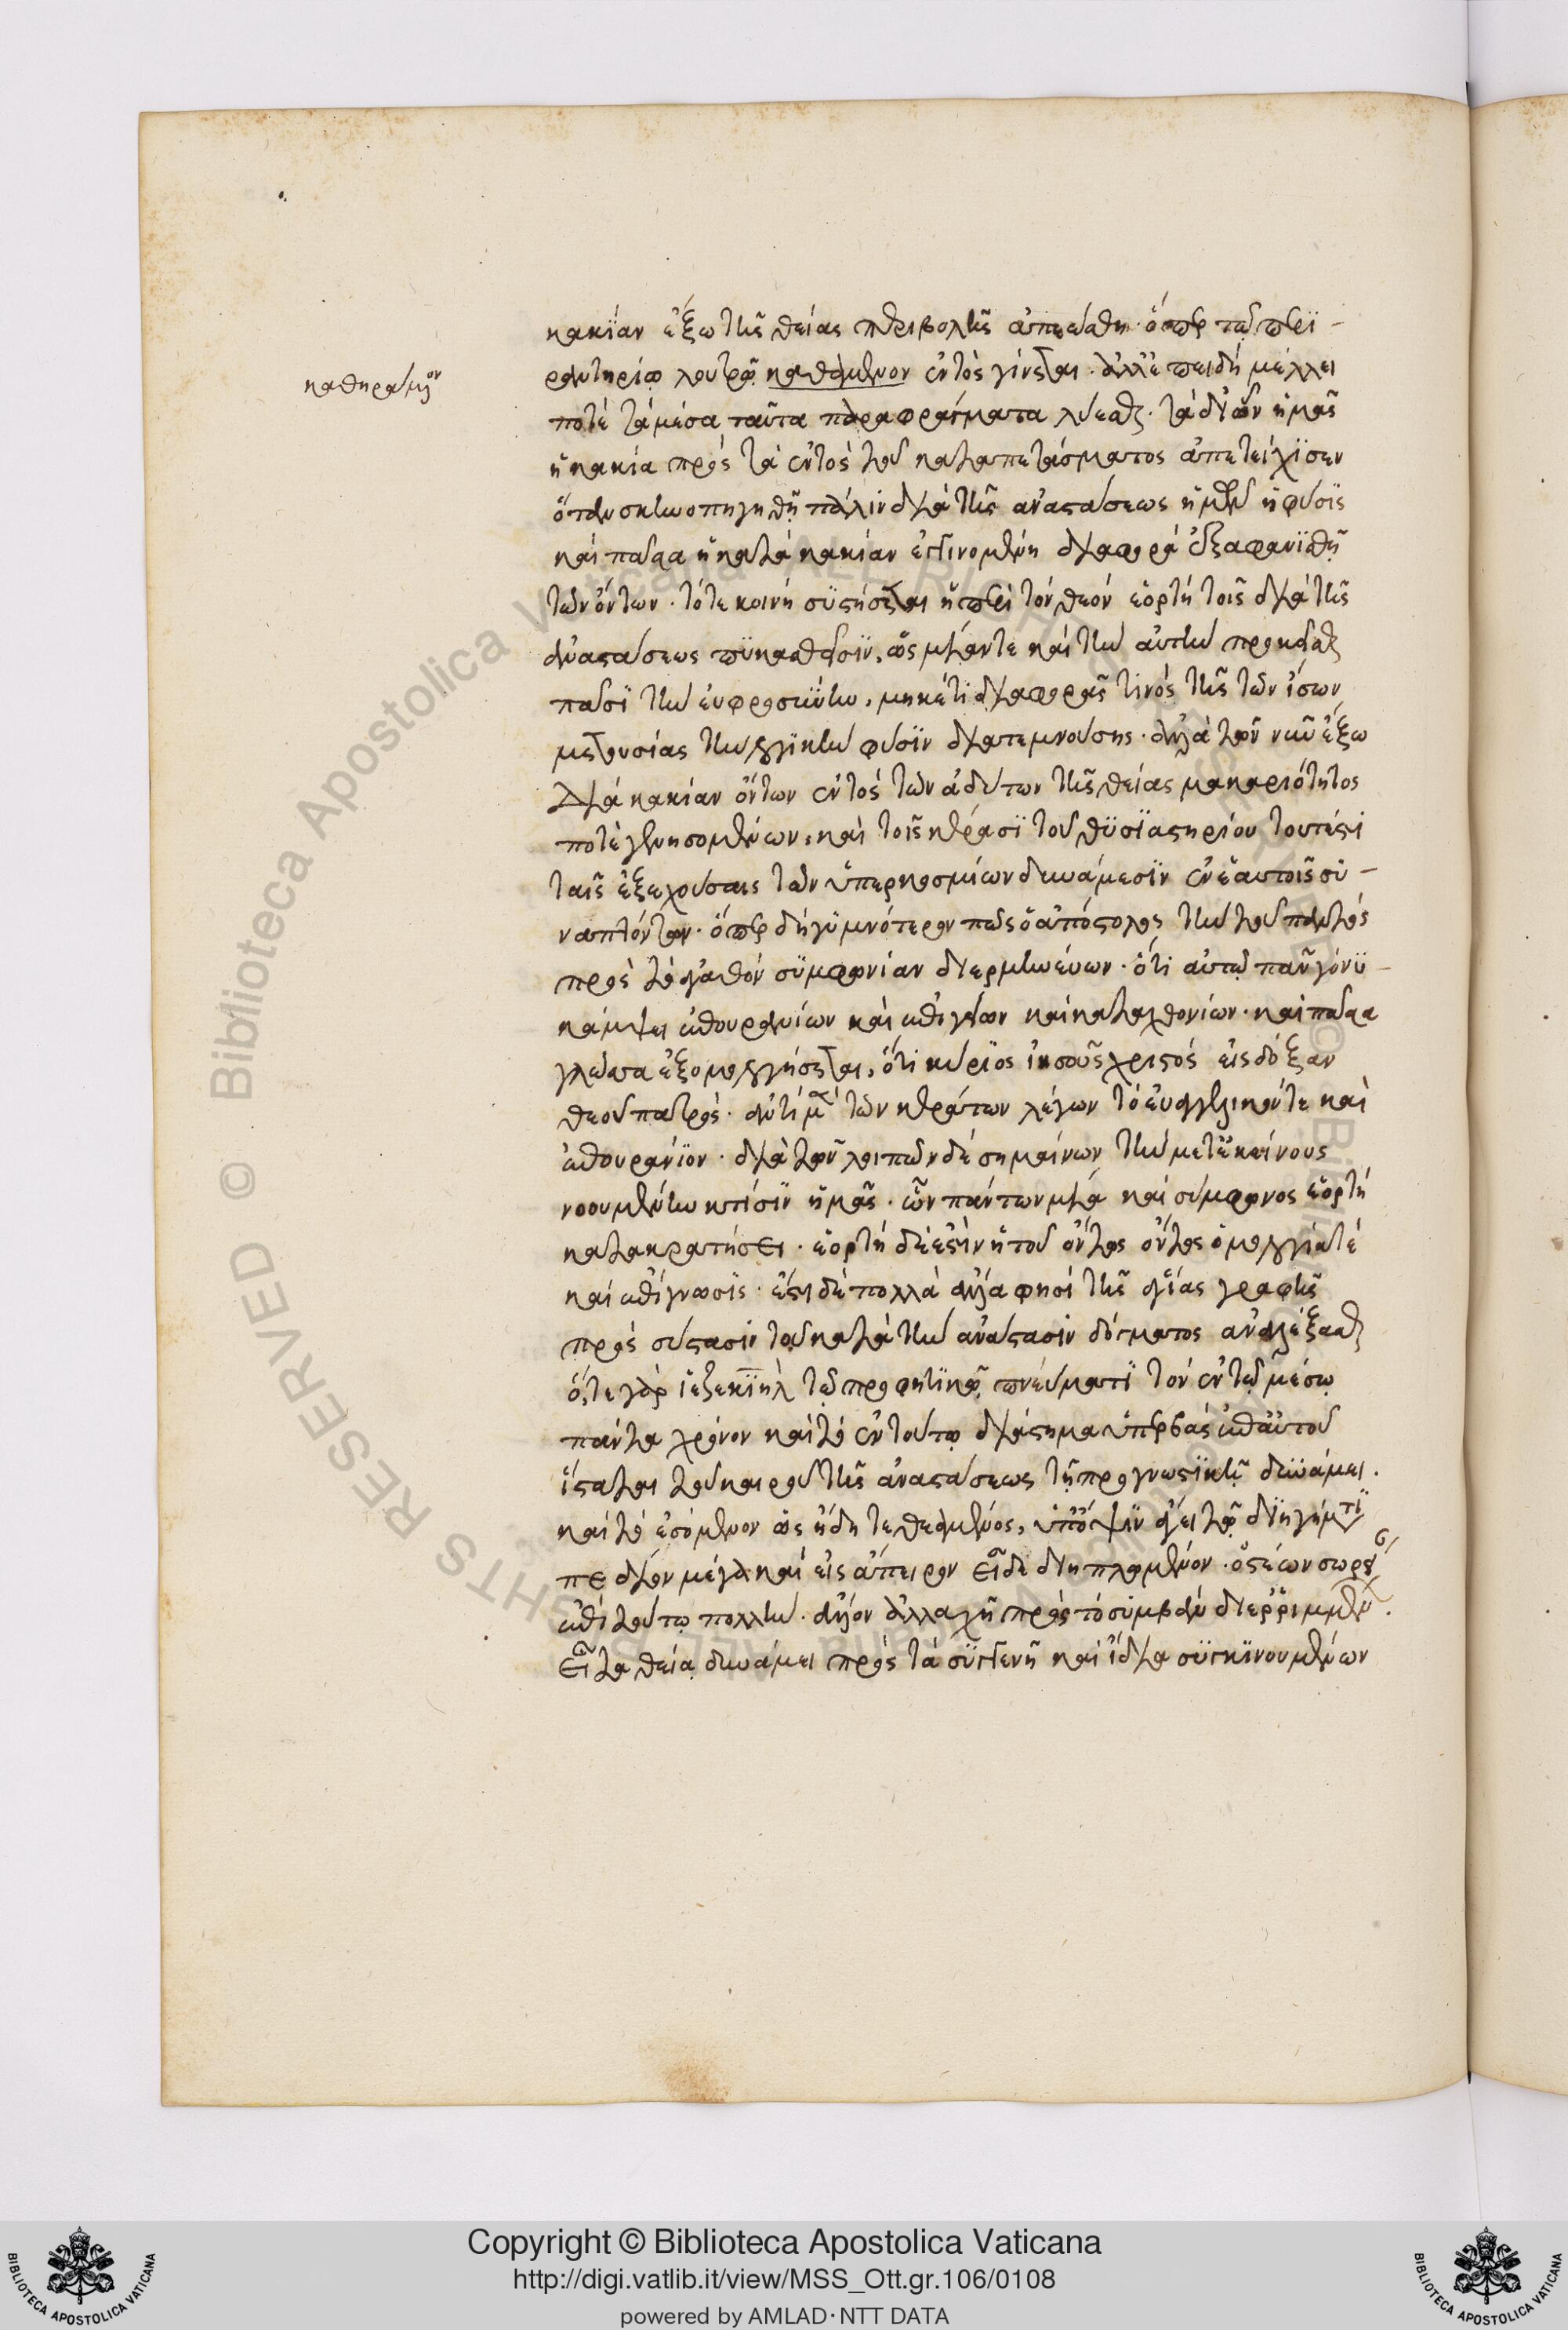 κακίαν ἔξω τῆς θείας περιβολῆς ἀπεώσθη· ὅπερ τῷ περι-
καθηράμενον
ραντηρίῳ λουτρῷ καθάμενον ἐντὸς γίνεται. ἀλλ' ἐπειδὴ μέλλει
ποτὲ τὰ μέσα ταῦτα παραφράγματα λύεσθαι· τὰ δι' ὧν ἡμᾶς
ἡ κακία πρὸς τὰ ἐντὸς τοῦ καταπετάσματος ἀπετείχισεν
ὅταν σκηνοπηγηθῇ πάλιν διὰ τῆς ἀναστάσεως ἡμῶν ἡ φύσις
καὶ πᾶσα ἡ κατὰ κακίαν ἐγγινομένη διαφορὰ ἐξαφανισθῇ
τῶν ὄντων· τότε κοινὴ συστήσεται ἡ περὶ τὸν θεὸν ἑορτὴ τοῖς διὰ τῆς
ἀναστάσεως πυκασθεῖσιν, ὡς μίαν τε καὶ τὴν αὐτὴν προκεῖσθαι
πᾶσι τὴν εὐφροσύνην, μηκέτι διαφορᾶς τινὸς τῆς τῶν ἴσων
μετουσίας τὴν λογικὴν φύσιν διατεμνούσης· ἀλλὰ τῶν νῦν ἔξω
διὰ κακίαν ὄντων ἐντὸς τῶν ἀδύτων τῆς θείας μακαριότητος
ποτὲ γενησομένων, καὶ τοῖς κέρασι τοῦ θυσιαστηρίου τουτέστι
ταῖς ἐξεχούσαις τῶν ὑπερκοσμίων δυνάμεσιν ἐν ἑαυτοῖς συ-
ναπτόντων· ὅπερ δὴ γυμνότερόν πως ὁ ἀπόστολος τὴν τοῦ παντὸς
πρὸς τὸ ἀγαθὸν συμφωνίαν διερμηνεύων· ὅτι αὐτῷ πᾶν γόνυ
κάμψει ἐπουρανίων καὶ ἐπιγείων καὶ καταχθονίων· καὶ πᾶσα
γλῶσσα ἐξομολογήσεται, ὅτι κύριος ἰησοῦς χριστὸς εἰς δόξαν
θεοῦ πατρός· ἀντὶ μὲν τῶν κεράτων λέγων τὸ εὐαγγελικόν τε καὶ
ἐπουράνιον· διὰ τῶν λοιπῶν δὲ σημαίνων τὴν μετ' ἐκείνους
νοουμένην κτίσιν ἡμᾶς· ὧν πάντων μία καὶ σύμφωνος ἑορτὴ
κατακρατήσει· ἑορτὴ δέ ἐστιν ἡ τοῦ ὄντος ὄντος ὁμολογία τέ
καὶ ἐπίγνωσις· ἔστι δὲ πολλὰ ἄλλα φησὶ τῆς ἁγίας γραφῆς
πρὸς σύστασιν τοῦ κατὰ τὴν ἀνάστασιν δόγματος ἀναλέξασθαι
ὅ, τε γὰρ ἰεζεκιὴλ τῷ προφητικῷ πνεύματι τὸν ἐν τῷ μέσῳ
πάντα χρόνον καὶ τὸ ἐν τούτῳ διάστημα ὑπερβὰς ἐπ' αὐτοῦ
ἵσταται τοῦ καιροῦ τῆς ἀναστάσεως τῇ προγνωστικῇ δυνάμει.
καὶ τὸ ἐσόμενον ὡς ἤδη τεθεαμένος, ὑπ' ὄψιν ἄγει τῷ διηγήματι
πεδίον μέγα καὶ εἰς ἄπειρον εἶδε διηπλωμένον· ὀστέων σωρὸς
ἐπὶ τούτῳ πολλὴν· ἄλλον ἀλλαχῇ πρὸς τὸ συμβὰν διερριμμένων.
εἶτα θείᾳ δυνάμει πρὸς τὰ συγγενῆ καὶ ἴδια συγκινουμένων
Copyright © Biblioteca Apostolica Vaticana
http://digi.vatlib.it/view/MSS_Ott.gr.106/0108
powered by AMLAD·NTT DATA